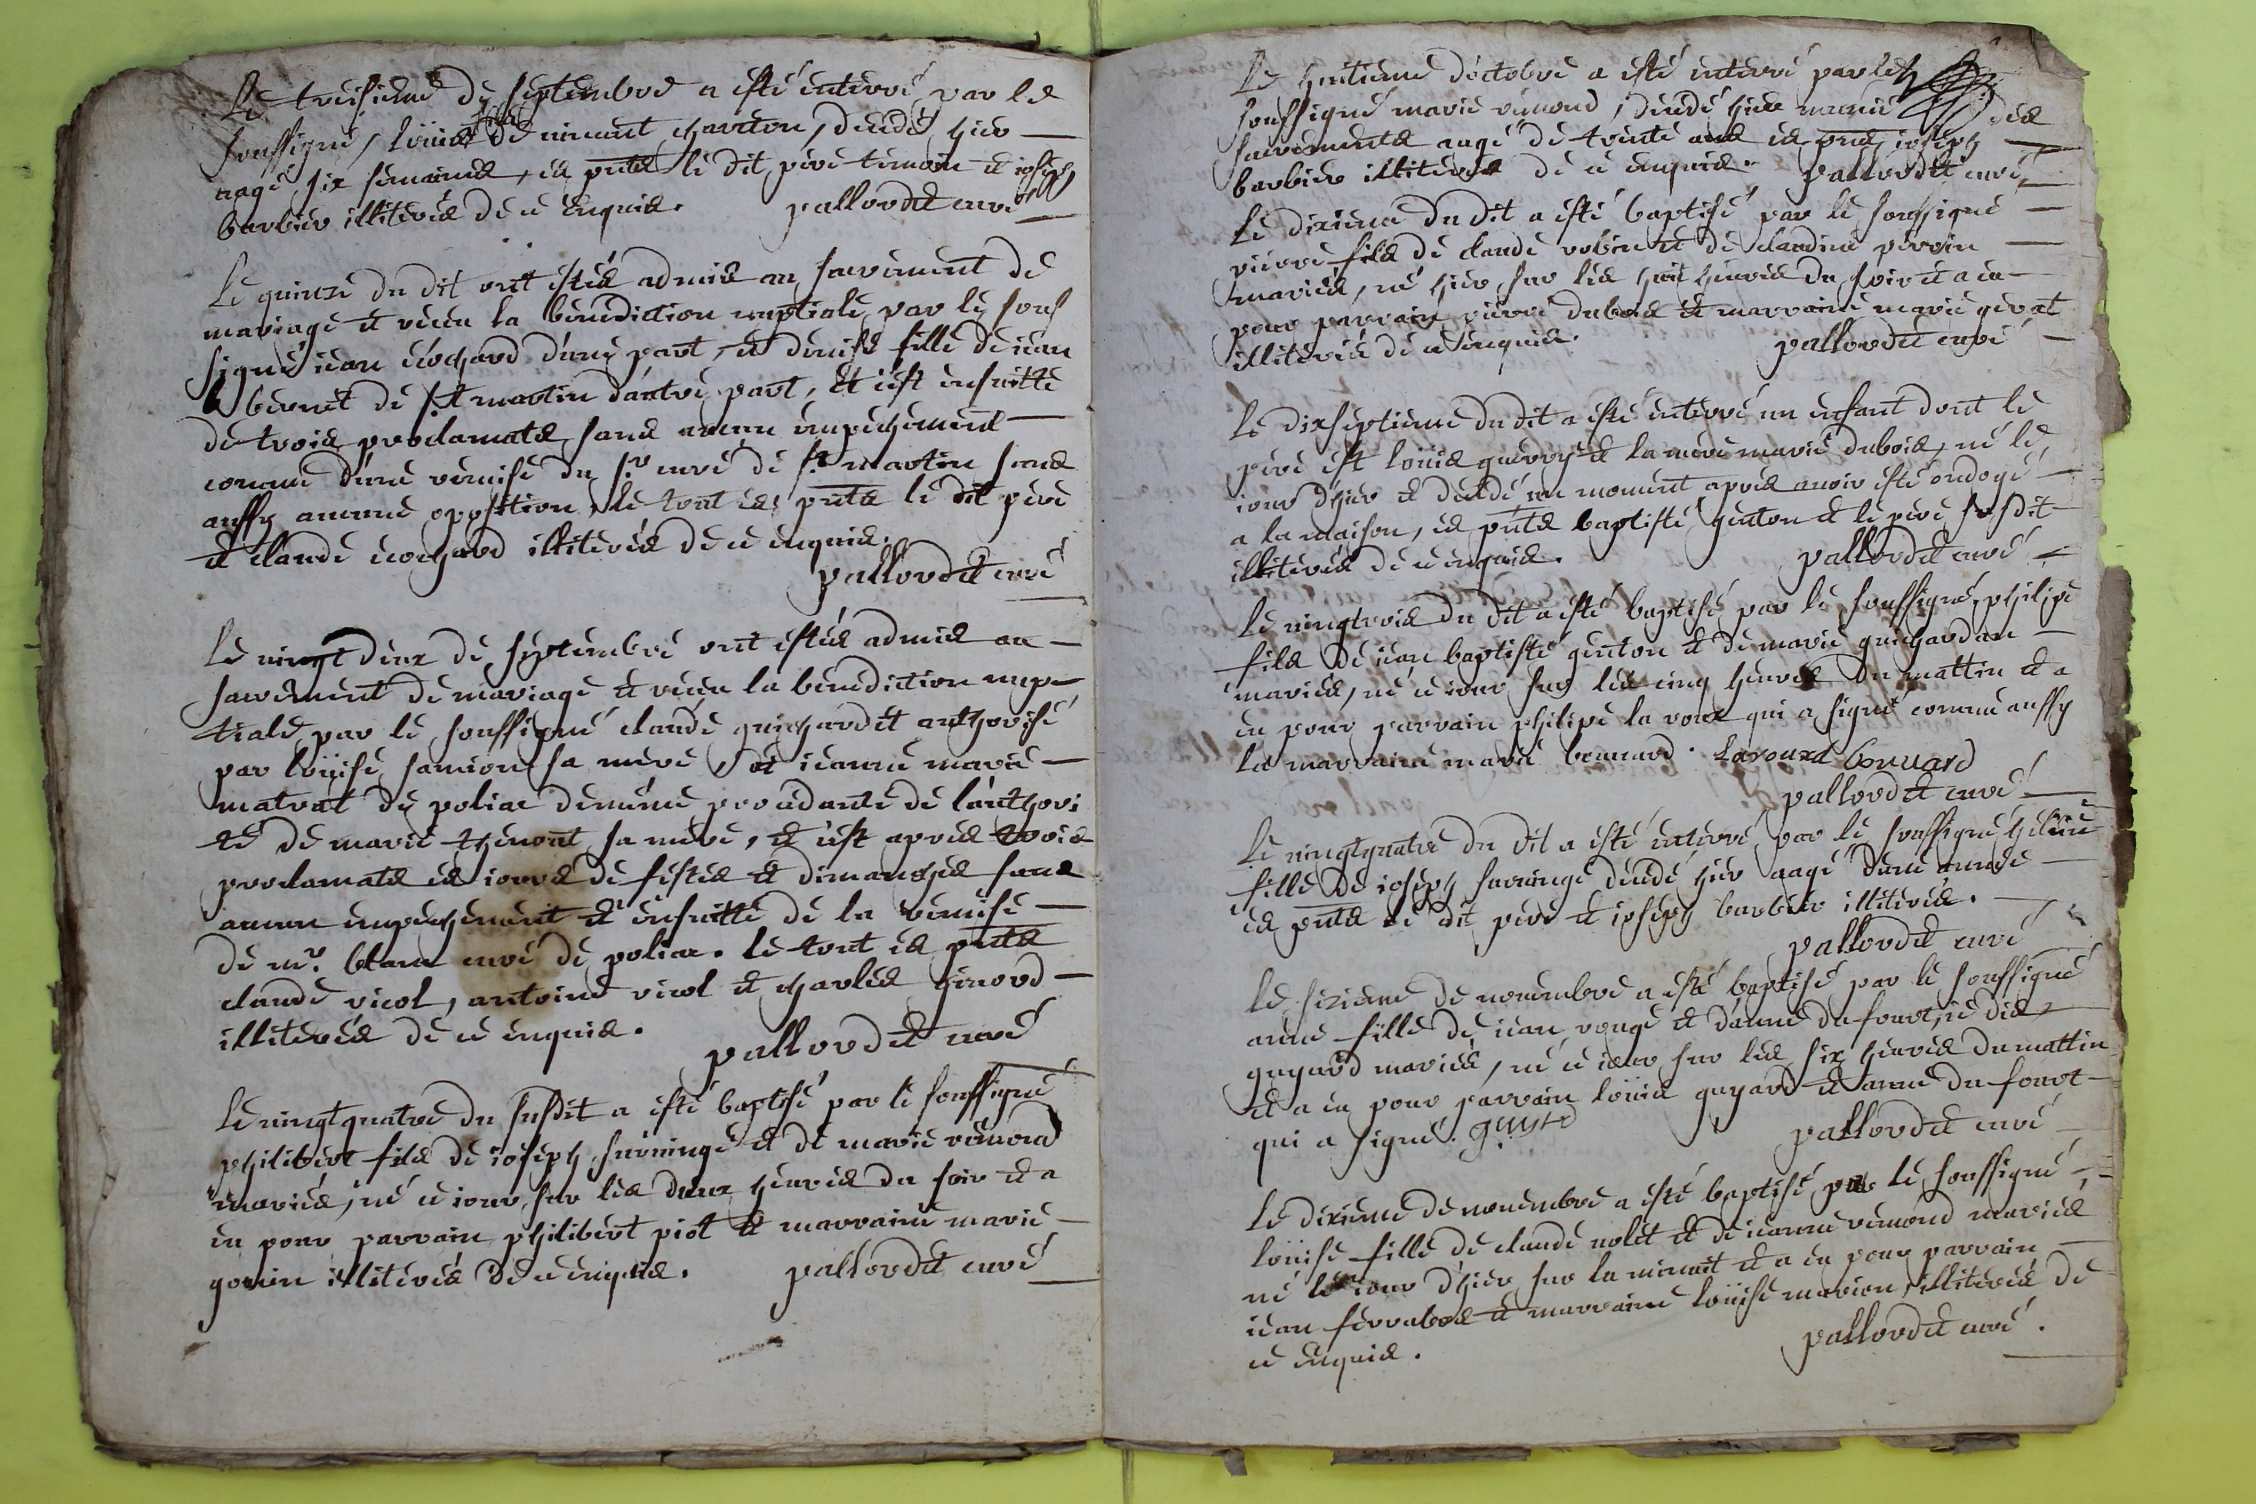 Le treisieme de septembre a esté enterré par le
soussigné, loüise fille de vincent charcton, décédé hier
aagé six semaines, és pnts le dit père temoin et joseph
barbier illiterés de ce enquis. pallordet curé
Le quinze du dit ont estés admis au sacrement de
mariage et reçeu la bénédiction nuptiale par le sous
signé jean écochard d'une part, et denise fille de jean
bernet de st martin d'autre part, et c'est ensuitte
de trois proclamats sans aucun empéchement
comme d'une remise du sr curé de st martin sans
aussy aucune oposition, le tout és pnts le dit père
et claude écochard illiterés de ce enquis.
pallordet curé
Le vingt deux de septembre ont estés admis au
sacrement de mariage et reçeu la bénédiction nup
tiale par le soussigné claude guichardet authorisé
par loüise samion sa mère, et jeanne marie
matrat de poliac demême procédante de l'authori
té de marie thenont sa mère, et c'est après trois
proclamats és jours de festes et dimanches sans
aucun empéchement et ensuitte de la remise
de mr. blanc curé de poliac. le tout és pnts
claude vicol, antoine vicol et charles girord
illiterés de ce enquis.
pallordet curé
Le vingtquatre du susdit a esté baptisé par le soussigné
philibert fils de joseph survinge et de marie rémond
mariés, né ce jour sur les deux heures du soir et a
eu pour parrain philibert piot et marraine marie
gonin illiterés de ce enquis. pallordet curé
Le huitieme d'octobre a esté enterré par le
soussigné marie rémond, décédé hier munie des
sacrements aagé de trente ans és pnts joseph
barbier illiterés de ce enquis. pallordet curé
Le dixieme du dit a esté baptisé par le soussigné
pierre fils de claude robin et de claudine perrin
mariés, né hier sur les huit heures du soir et a eu
pour parrain pierre dubois et marraine marie gerat
illiterés de ce enquis. pallordet curé
Le dixseptieme du dit a esté enterré un enfant dont le
père est loüis guerry et la mère marie dubois, né le
jour d'hier et décédé un moment après avoir esté ondoyé
a la maison, és pnts baptiste genton et le père susdit
illiterés de ce enquis. pallordet curé
Le vingtrois du dit a esté baptisé par le soussigné, philipe
fils de jean baptiste genton et de marie guichardan
mariés, né ce jour sur les cinq heures du mattin et a
eu pour parrain philipe la roux qui a signé comme aussy
la marraine marie bonnard. Laroux bonnard
pallordet curé
Le vingtquatre du dit a esté enterré par le soussigné hélène
fille de joseph survinge décédé hier aagé d'une année
és pnts le dit père et joseph barbier illiterés.
pallordet curé
Le sixieme de novembre a esté baptisé par le soussigné
anne fille de jean rougé et d'anne du fourt, je dis
guyard mariés, né ce jour sur les six heures du mattin
et a eu pour parrain loüis guyard et anne du fourt
qui a signé. guyard pallordet curé
Le dixieme de novembre a esté baptisé par le soussigné
loüise fille de claude nolet et de jeanne rémond mariés
né le jour d'hier sur la minuit et a eu pour parrain
jean ferrabos et marraine loüise marion, illiterés de
ce enquis. pallordet curé.